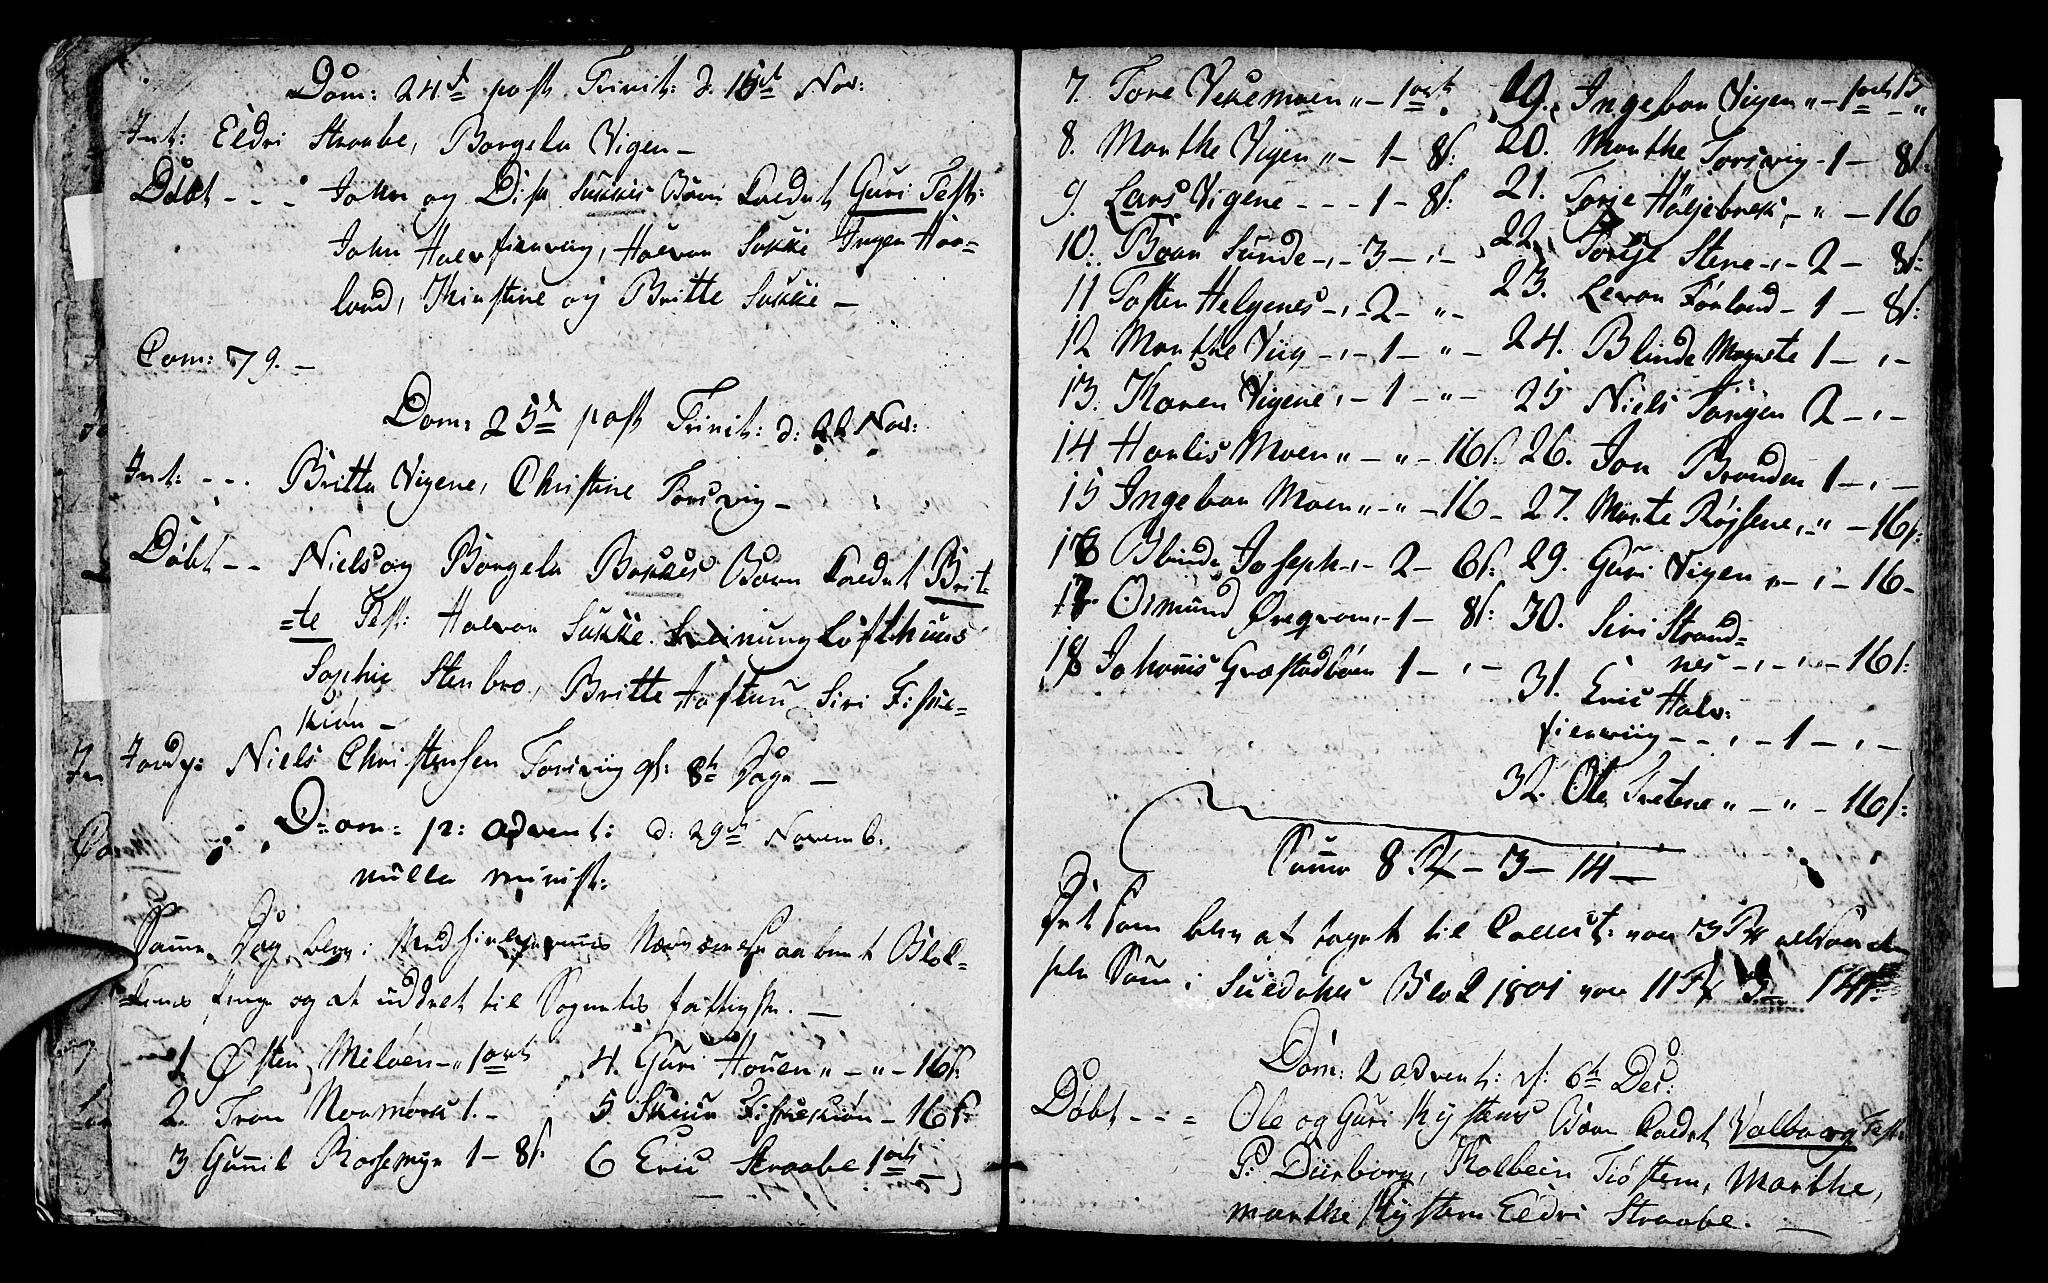 Dom: 24d post Trinit: d. 15de Nov:
Int: Eldri Straabe, Borgela Vigen –
Døbt - - - John og Dis Sukkes Barn kaldet Guri Test:
John Halvfierviig, Halvor Sukke Inger Haa=
land, Kirstine og Britte Sukke –
Com: 79. –
Dom: 25d post Trinit: d: 22 Nov:
Int: - - - Britta Vigene, Christine Torsvig –
Døbt - - Niels og Borgela Bakkes Barn kaldet Brit=
=te Test: Halvor Sukke. Steinung Lofthuus
Sophie Stenbro, Britte Toftun Siri Fiske=
kiøn –
Jordf: Niels Christensen Torsviig gl: 8te Dage –
Dom: p: advent: d: 29de Novemb.
nulla minist:
Samme Dag blev i Medhielpernes Nærværelse aabnet Blok=
=kens penge og at uddelt til Sognets fattigste. –
1 Østen Miløen – " 1 ort
4. Guri Houen " – " – 16 s.
2. Tron Noamork 1. –
5 Skiur Fiskekiøn – 16 s:
3 Gunil Rossemyr 1 – 8 s.
6 Eric Straabe 1 ort –
7. Tore Vekemoen " – 1 ort.
8. Marthe Vigen " – 1 – 8 s:
9. Lars Vigene - - - 1 – 8 s:
10. Boar Sunde - , - 3 – , –
11 Tosten Helgenes - , - 2 – " –
12 Marthe Viig - , - 1 – " –
13. Karen Vigene , – 1 – " –
14 Harlis Moen " – " – 16 s:
15 Ingebor Moen " – " – 16 –
16 Blinde Joseph - , - 2 – 6 s:
17 Osmund Øregram , – 1 – 8 s:
18 Johannis Græstadbøen 1 – , –
19. Ingebor Vigen " – 1 ort – "
15
20. Marthe Torsvig – 1 – 8 s:
21. Torje Høljebrek , – " – 16
22. Torje Stene - , - 2 – 8 s:
23. Levor Førland – 1 – 8 s:
24. Blinde Magnete 1 – , –
25 Niels Torgen 2 – , –
26. Jon Branden 1 – , –
27. Marte Røjsene , – " – 16 s:
29. Guri Vigen " – , – 16 –
30. Siri Strand=
nes - , - , – 16 s:
31. Eric Halv=
fierviig - - , – 1 – , –
32. Ole Tvetene " – " – 16 s:
Summa 8 Rd – 3 – 14 –
Det som blev at taget til Collect: var 3 Rd altsaa den
hele Sum i Suledahls Blok 1801 var 11 Rd 3 – 14 s:
Dom: 2 advent: d: 6te Dec:
Døbt - - = Ole og Guri Hystens Barn kaldet Valborg Test:
P: Duborg, Kolbein Tiøstem, Marthe,
marthe Hysten Eldri Straabe. –